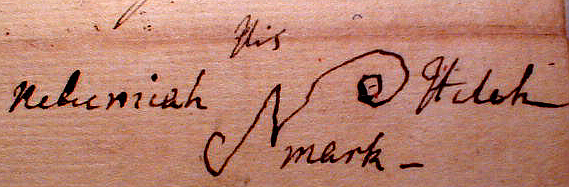 His
Nehemiah N Hitch
mark –